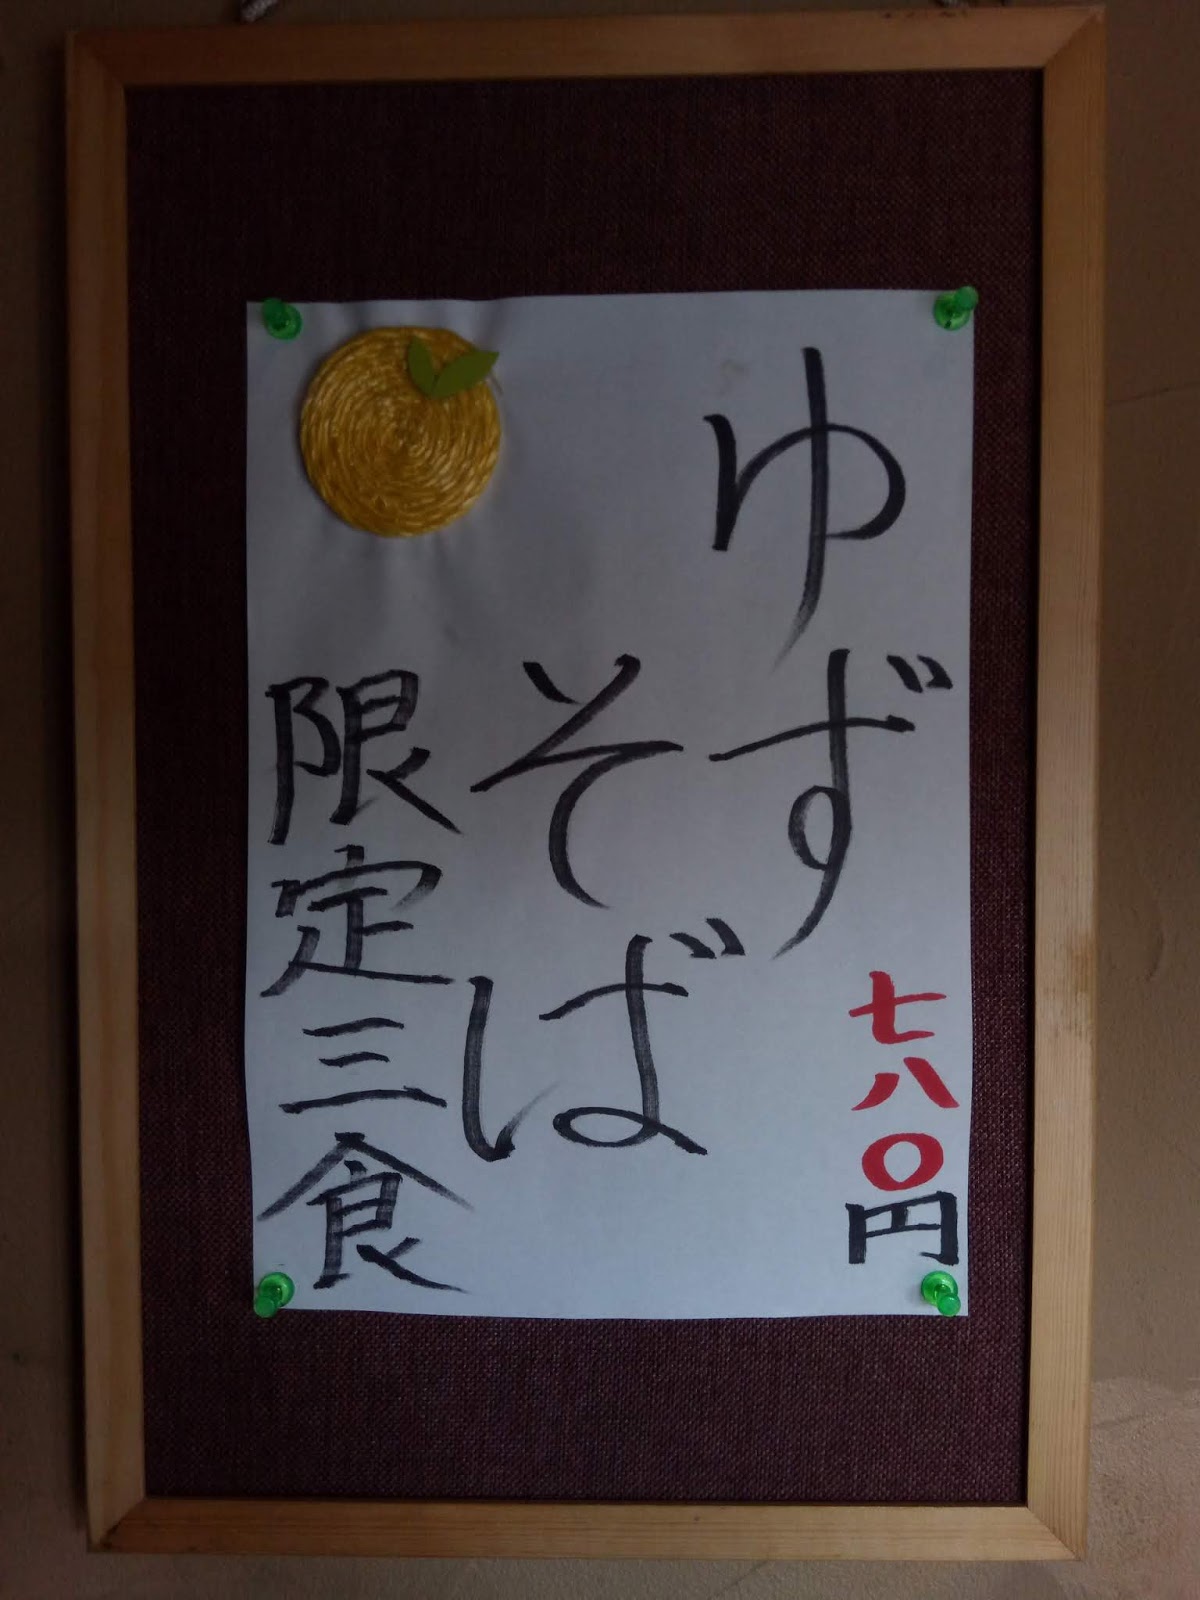 ゆず
七八〇円
そば
限定三食